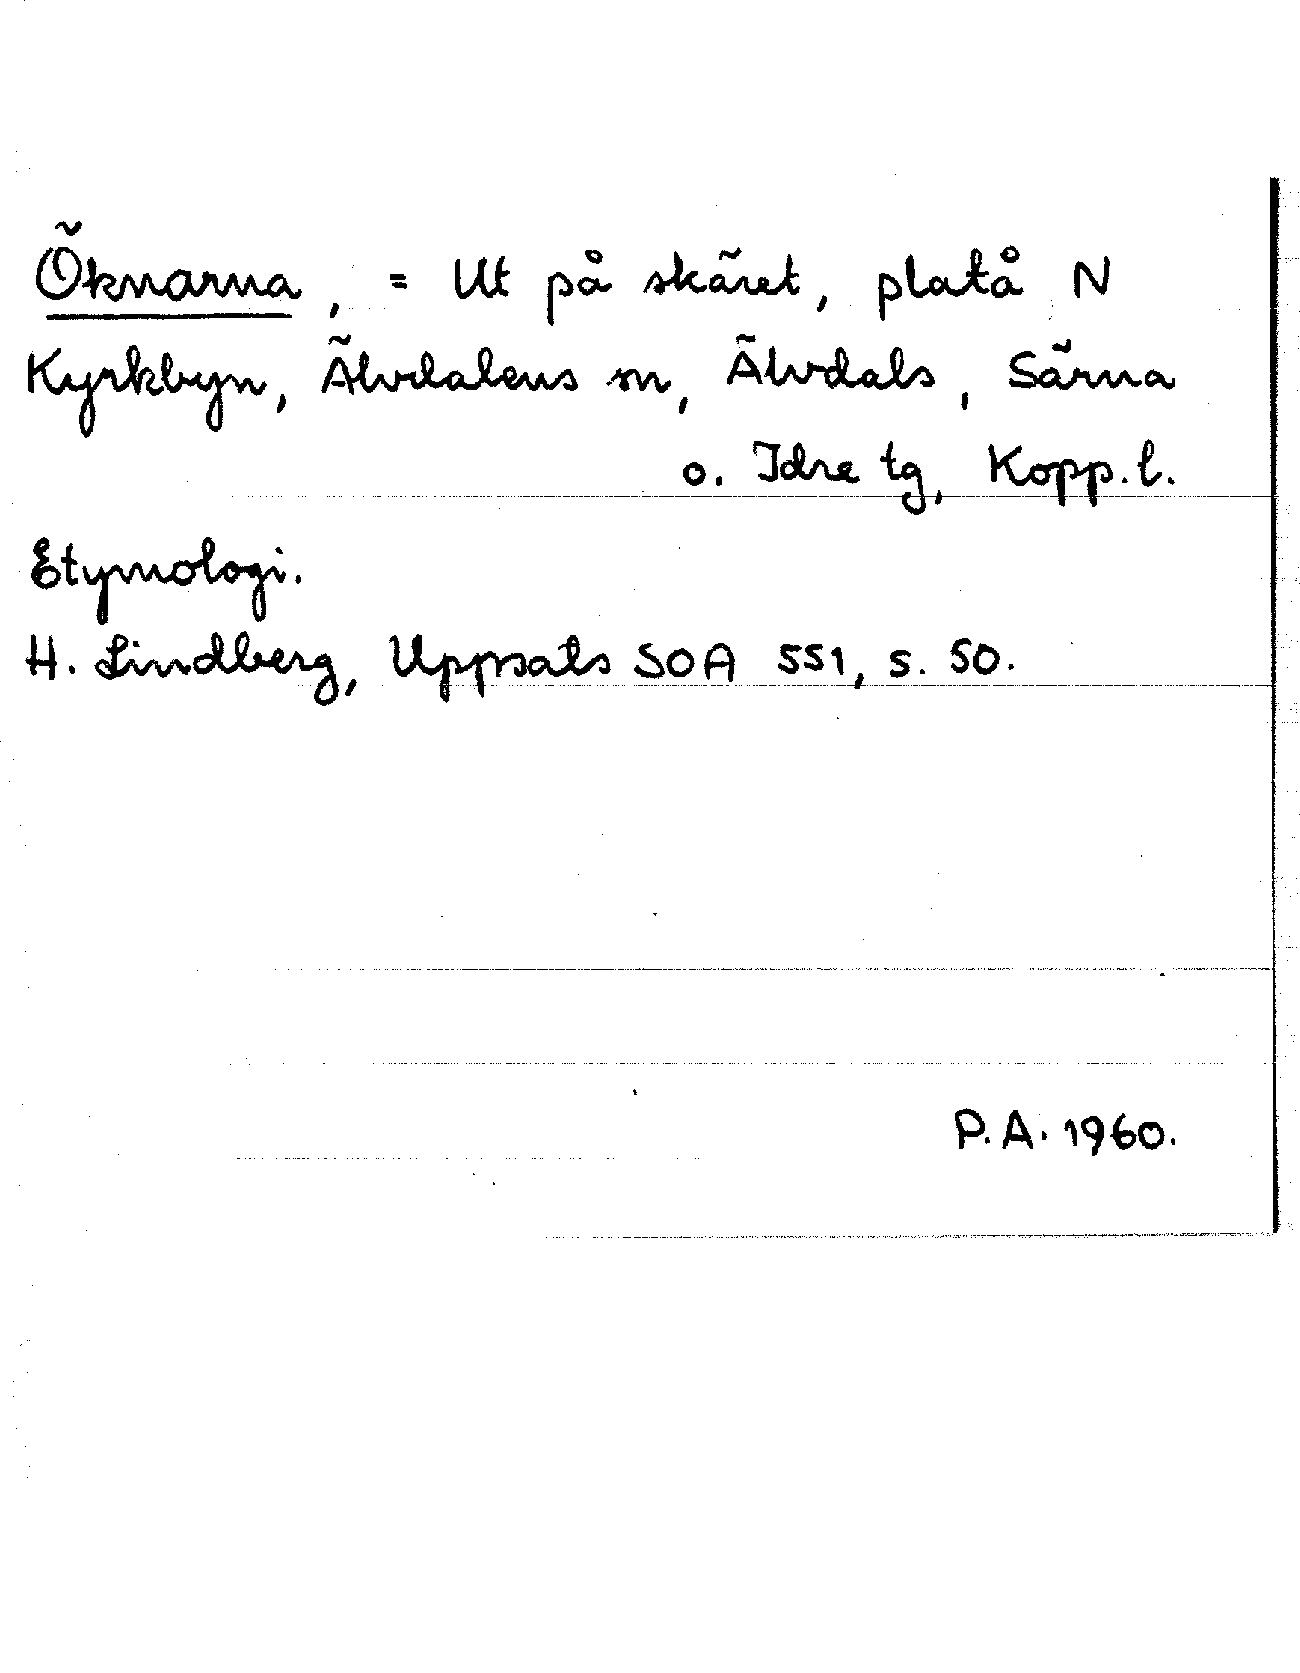 Öknarna, = Ut på skäret, platå N
Kyrkbyn, Älvdalens sn, Älvdals, Särna
o. Idre tg, Kopp. l.
Etymologi.
H. Lindberg, Uppsats SOA 551, s. 50.
P.A. 1960.